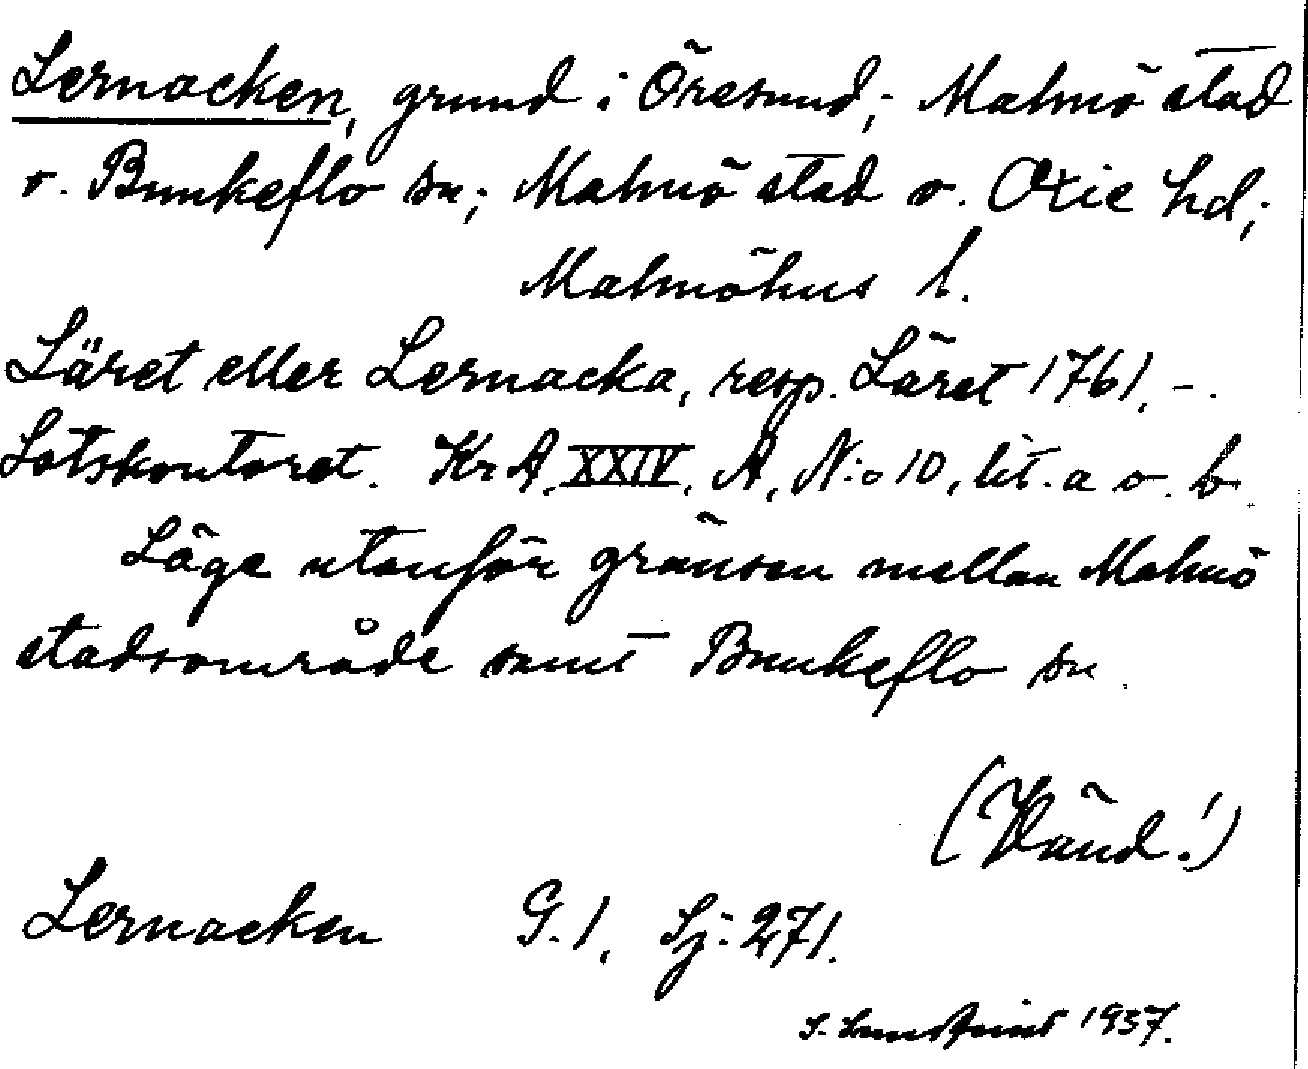 Lernacken, grund i Öresund; Malmö stad
o. Bunkeflo sn; Malmö stad o. Oxie hd;
Malmöhus l.
Läret eller Lernacka, resp. Läret 1761, -.
Lotskontoret. KrA, XXIV, A, N:o 10, lit. a o. b.
Läge utanför gränsen mellan Malmö
stadsområde samt Bunkeflo sn.
(Vänd!)
Lernacken G. 1, Sj: 271.
S. 1937.